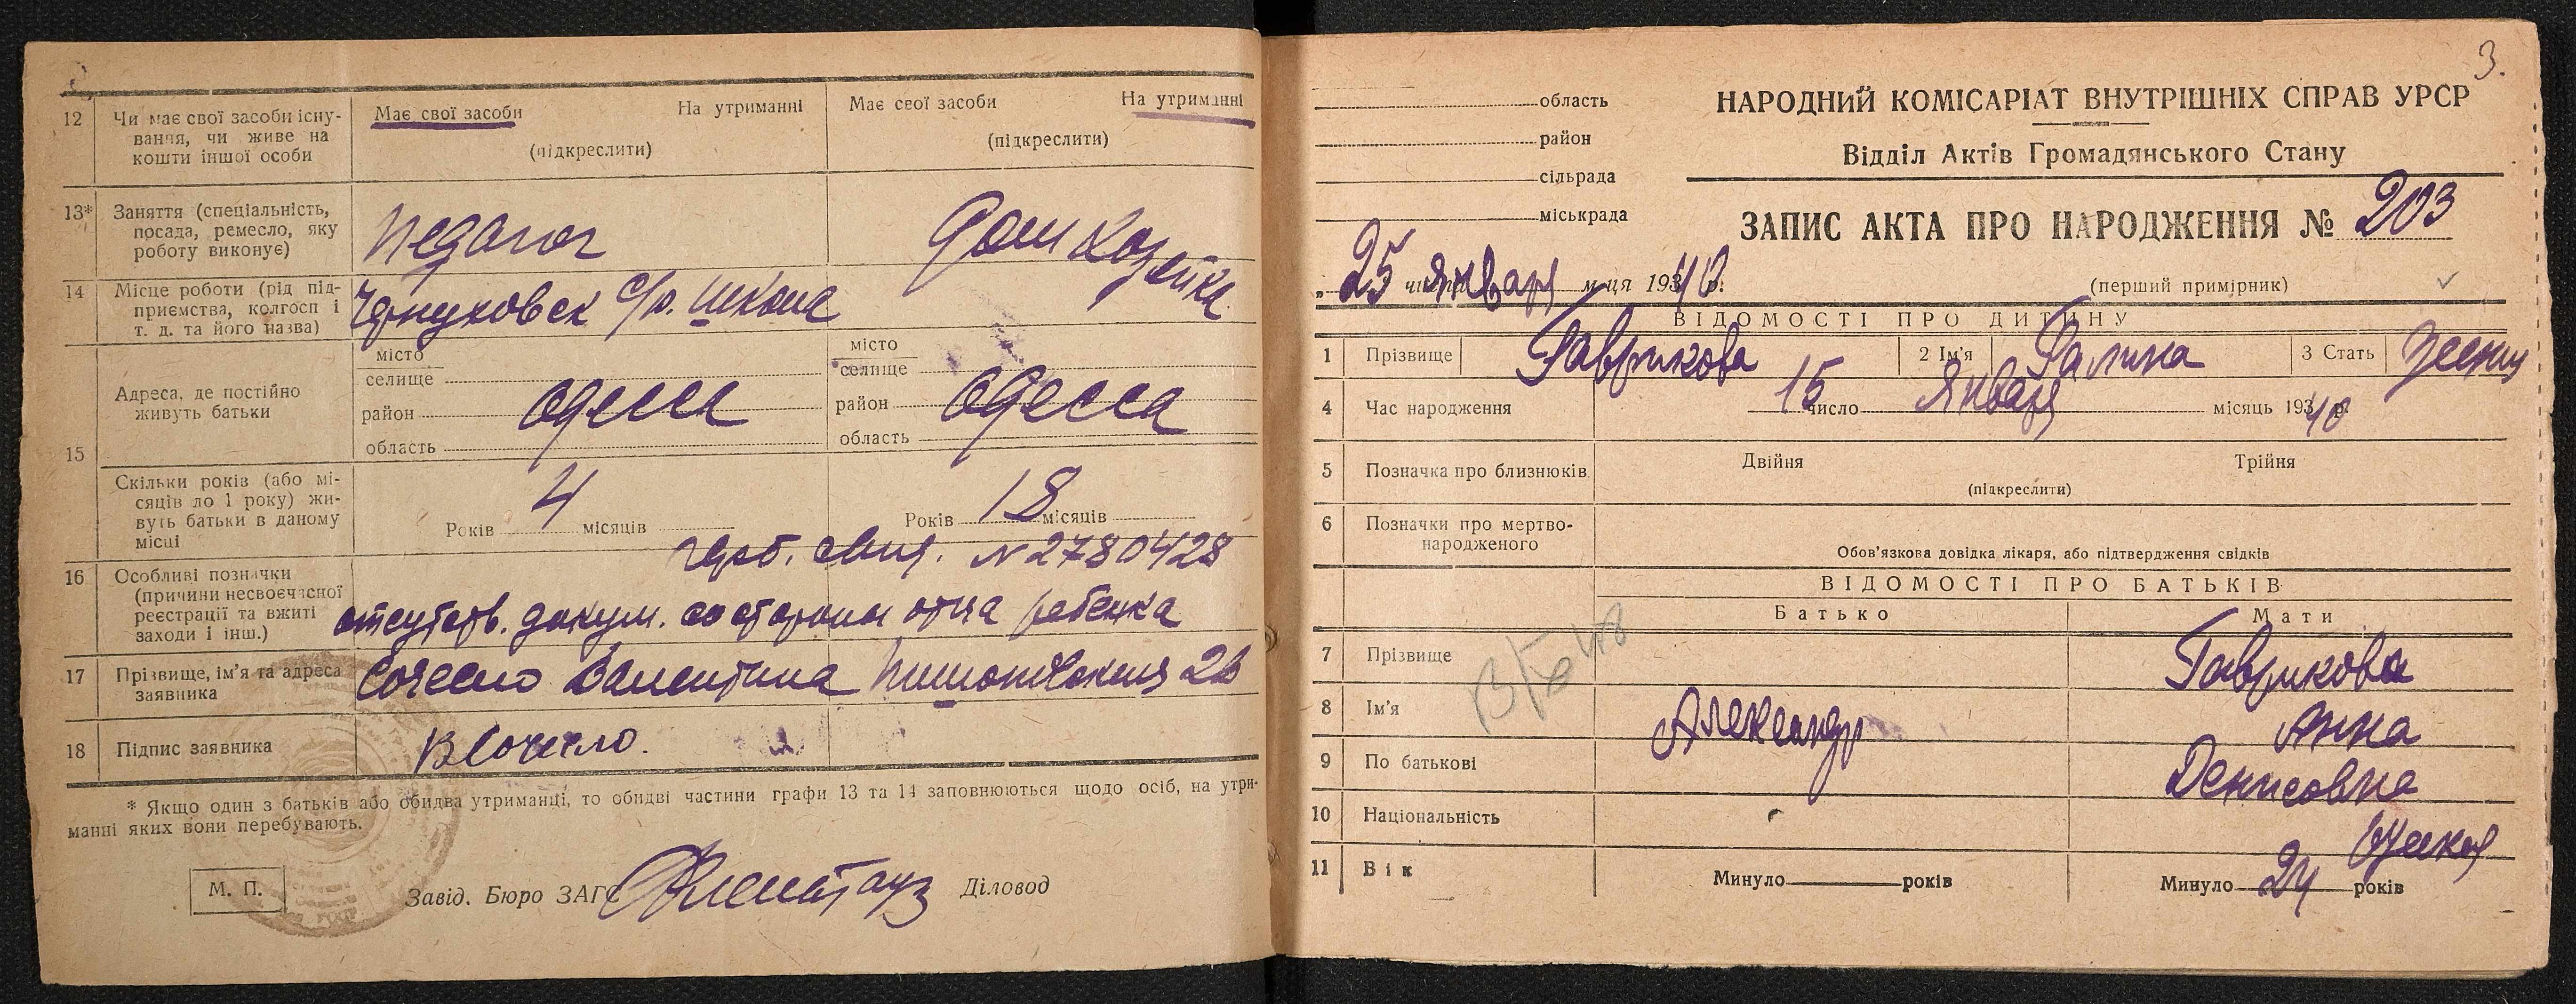 12 Чи має свої засоби існування, чи живе на кошти іншої особи
Має свої засоби На утриманні
(підкреслити)
Має свої засоби На утриманні
(підкреслити)
13* Заняття (спеціальність, посада, ремесло, яку роботу виконує)
педагог
Домхозяйка
14 Місце роботи (рід підприємства, колгосп і т. д. та його назва)
с/р. школа
Адреса, де постійно живуть батьки
місто
селище
район Одесса
область
місто
селище
район Одесса
область
15
Скільки років (або місяців до 1 року) живуть батьки в даному місці
Років 4 місяців
Років 18 місяців
16 Особливі позначки (причини несвоєчасної реєстрації та вжиті заходи і інш.)
герб. свид. N 2780428
отсутств. докум. со стороны отца ребенка
17 Прізвище, ім'я та адреса заявника
Валентина
18 Підпис заявника
* Якщо один з батьків або обидва утриманці, то обидві частини графи 13 та 14 заповнюються щодо осіб, на утри-
манні яких вони перебувають.
М. П.
Завід. Бюро ЗАГС Діловод
3.
область
район
сільрада
міськрада
НАРОДНИЙ КОМІСАРІАТ ВНУТРІШНІХ СПРАВ УРСР
Відділ Актів Громадянського Стану
ЗАПИС АКТА ПРО НАРОДЖЕННЯ № 203
„ 25 числа января м-ця 1940 р.
(перший примірник)
ВІДОМОСТІ ПРО ДИТИНУ
1 Прізвище Гаврикова 2 Ім'я Галина 3 Стать женщ
4 Час народження 15 число января місяць 1940 р.
5 Позначка про близнюків Двійня Трійня
(підкреслити)
6 Позначки про мертвонародженого
Обов'язкова довідка лікаря, або підтвердження свідків
ВІДОМОСТІ ПРО БАТЬКІВ
Батько Мати
7 Прізвище Гаврикова
8 Ім'я Александр Анна
9 По батькові Денисовна
10 Національність русская
11 Вік Минуло років Минуло 24 років